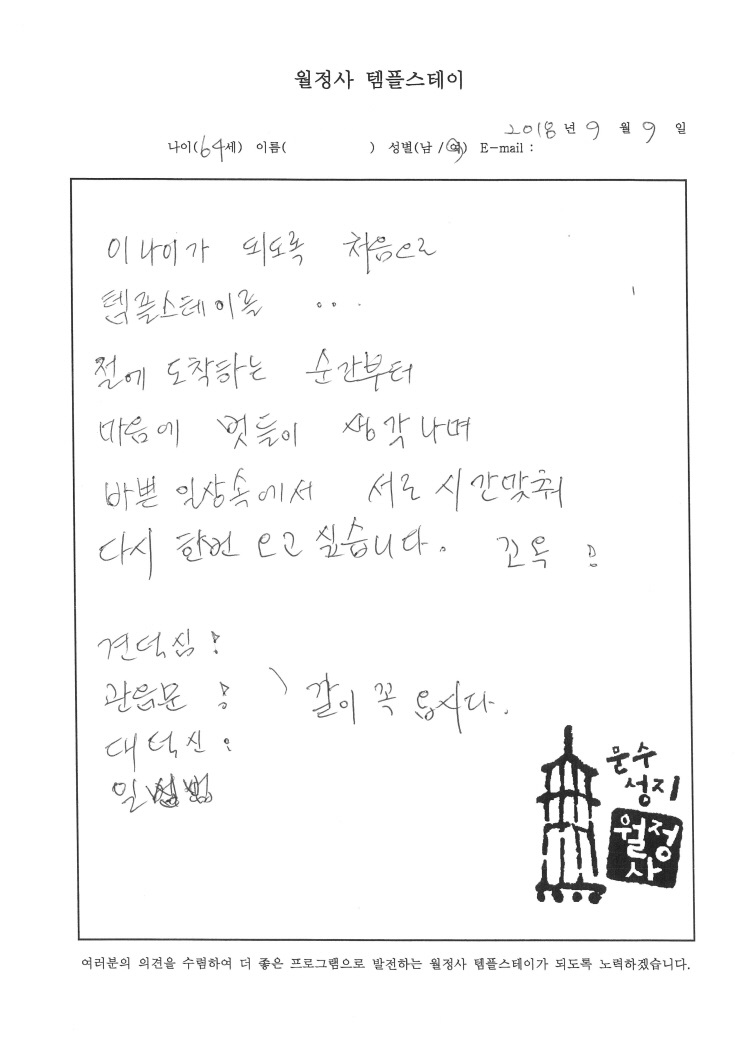 월정사 템플스테이
2018년 9월 9일
나이(64세) 이름( ) 성별(남 / 여) E-mail :
이 나이가 되도록 처음으로
템플스테이를 ...
절에 도착하는 순간부터
마음에 벗들이 생각나며
바쁜 일상속에서 서로 시간맞춰
다시 한번 오고 싶습니다. 꼬옥 !
견덕심 !
관음문 ! ) 같이 꼭 옵시다.
대덕신 !
일
문수
성지
월정
사
여러분의 의견을 수렴하여 더 좋은 프로그램으로 발전하는 월정사 템플스테이가 되도록 노력하겠습니다.